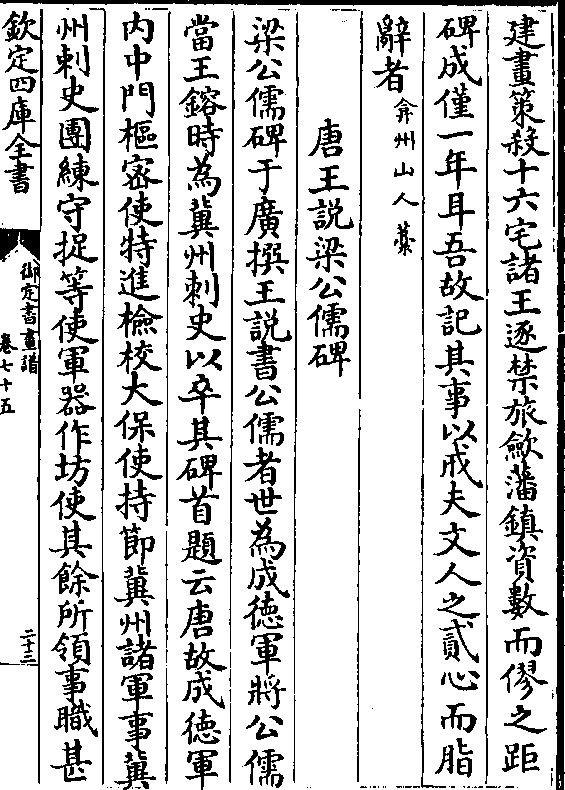 建畫策殺十六宅諸王逐禁旅歛藩鎮資數而僇之距
碑成僅一年耳吾故記其事以戒夫文人之貳心而脂
辭者弇州山人藁
唐王説梁公儒碑
梁公儒碑于廣撰王説書公儒者世為成徳軍將公儒
當王鎔時為冀州刺史以卒其碑首題云唐故成徳軍
内中門樞宻使特進檢校大保使持節冀州諸軍事冀
州刺史團練守捉等使軍器作坊使其餘所領事職甚
欽定四庫全書
御定書畫譜
卷七十五
二十三